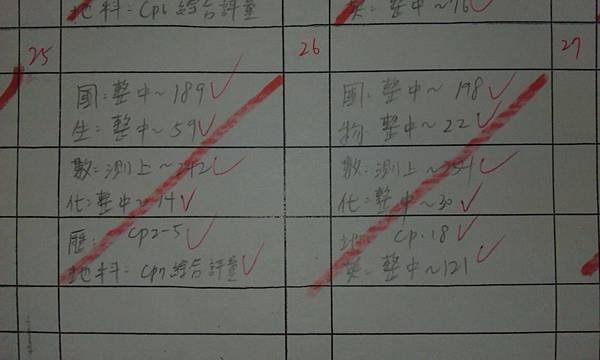 地科: cp6 綜合評量
英: 整中~76
25
26
27
國: 整中~189
生: 整中~59
數: 測上~242
化: 整中~14
歷: cp2-5
地科: cp7 綜合評量
國: 整中~198
物: 整中~22
數: 測上~254
化: 整中~30
地: cp.18
英: 整中~121